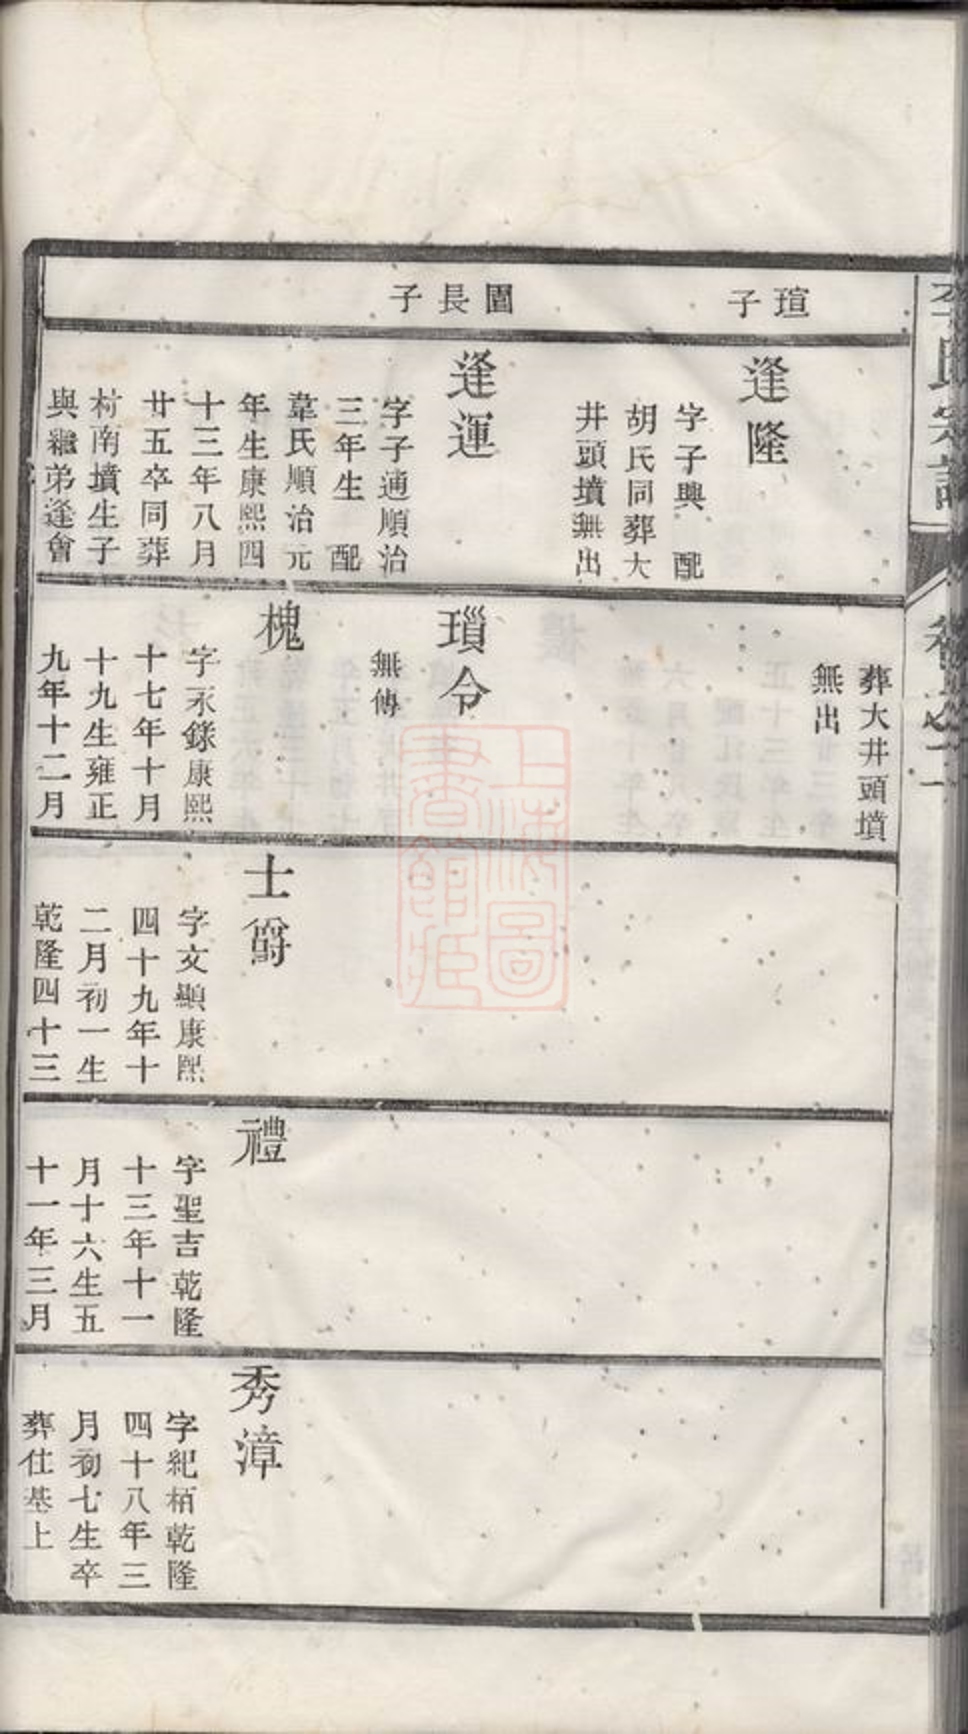 李氏宗譜
卷之二
瑄子
圖長子
逢隆
字子興 配
胡氏同葬大
井頭墳無出
逢運
字子通順治
三年生 配
韋氏順治元
年生康熙四
十三年八月
廿五卒同葬
村南墳生子
與繼弟逢會
葬大井頭墳
無出
瑣令
無傳
槐
字永錄康熙
十七年十月
十九生雍正
九年十二月
士爵
字文顯康熙
四十九年十
二月初一生
乾隆四十三
禮
字聖吉乾隆
十三年十一
月十六生五
十一年三月
秀漳
字紀栢乾隆
四十八年三
月初七生卒
葬仕基上
上海圖
書館藏